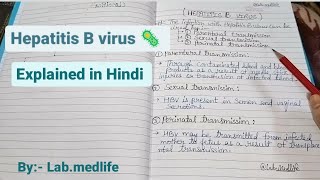 (HEPATITIS B VIRUS)
Hepatitis B virus 🦠
Explained in Hindi
By:- Lab.medlife
The infection with Hepatitis B virus can be
Parenteral transmission
Sexual transmission
Perinatal transmission
① Parenteral transmission :
Through contaminated blood and blood
products as a result of needle stick
injuries or transfusion of infected blood
② Sexual transmission :
HBV is present in semen and vaginal
secretions.
③ Perinatal transmission :
HBV may be transmitted from infected
mother to fetus as a result of transplacental
transmission.
@Lab.Medlife